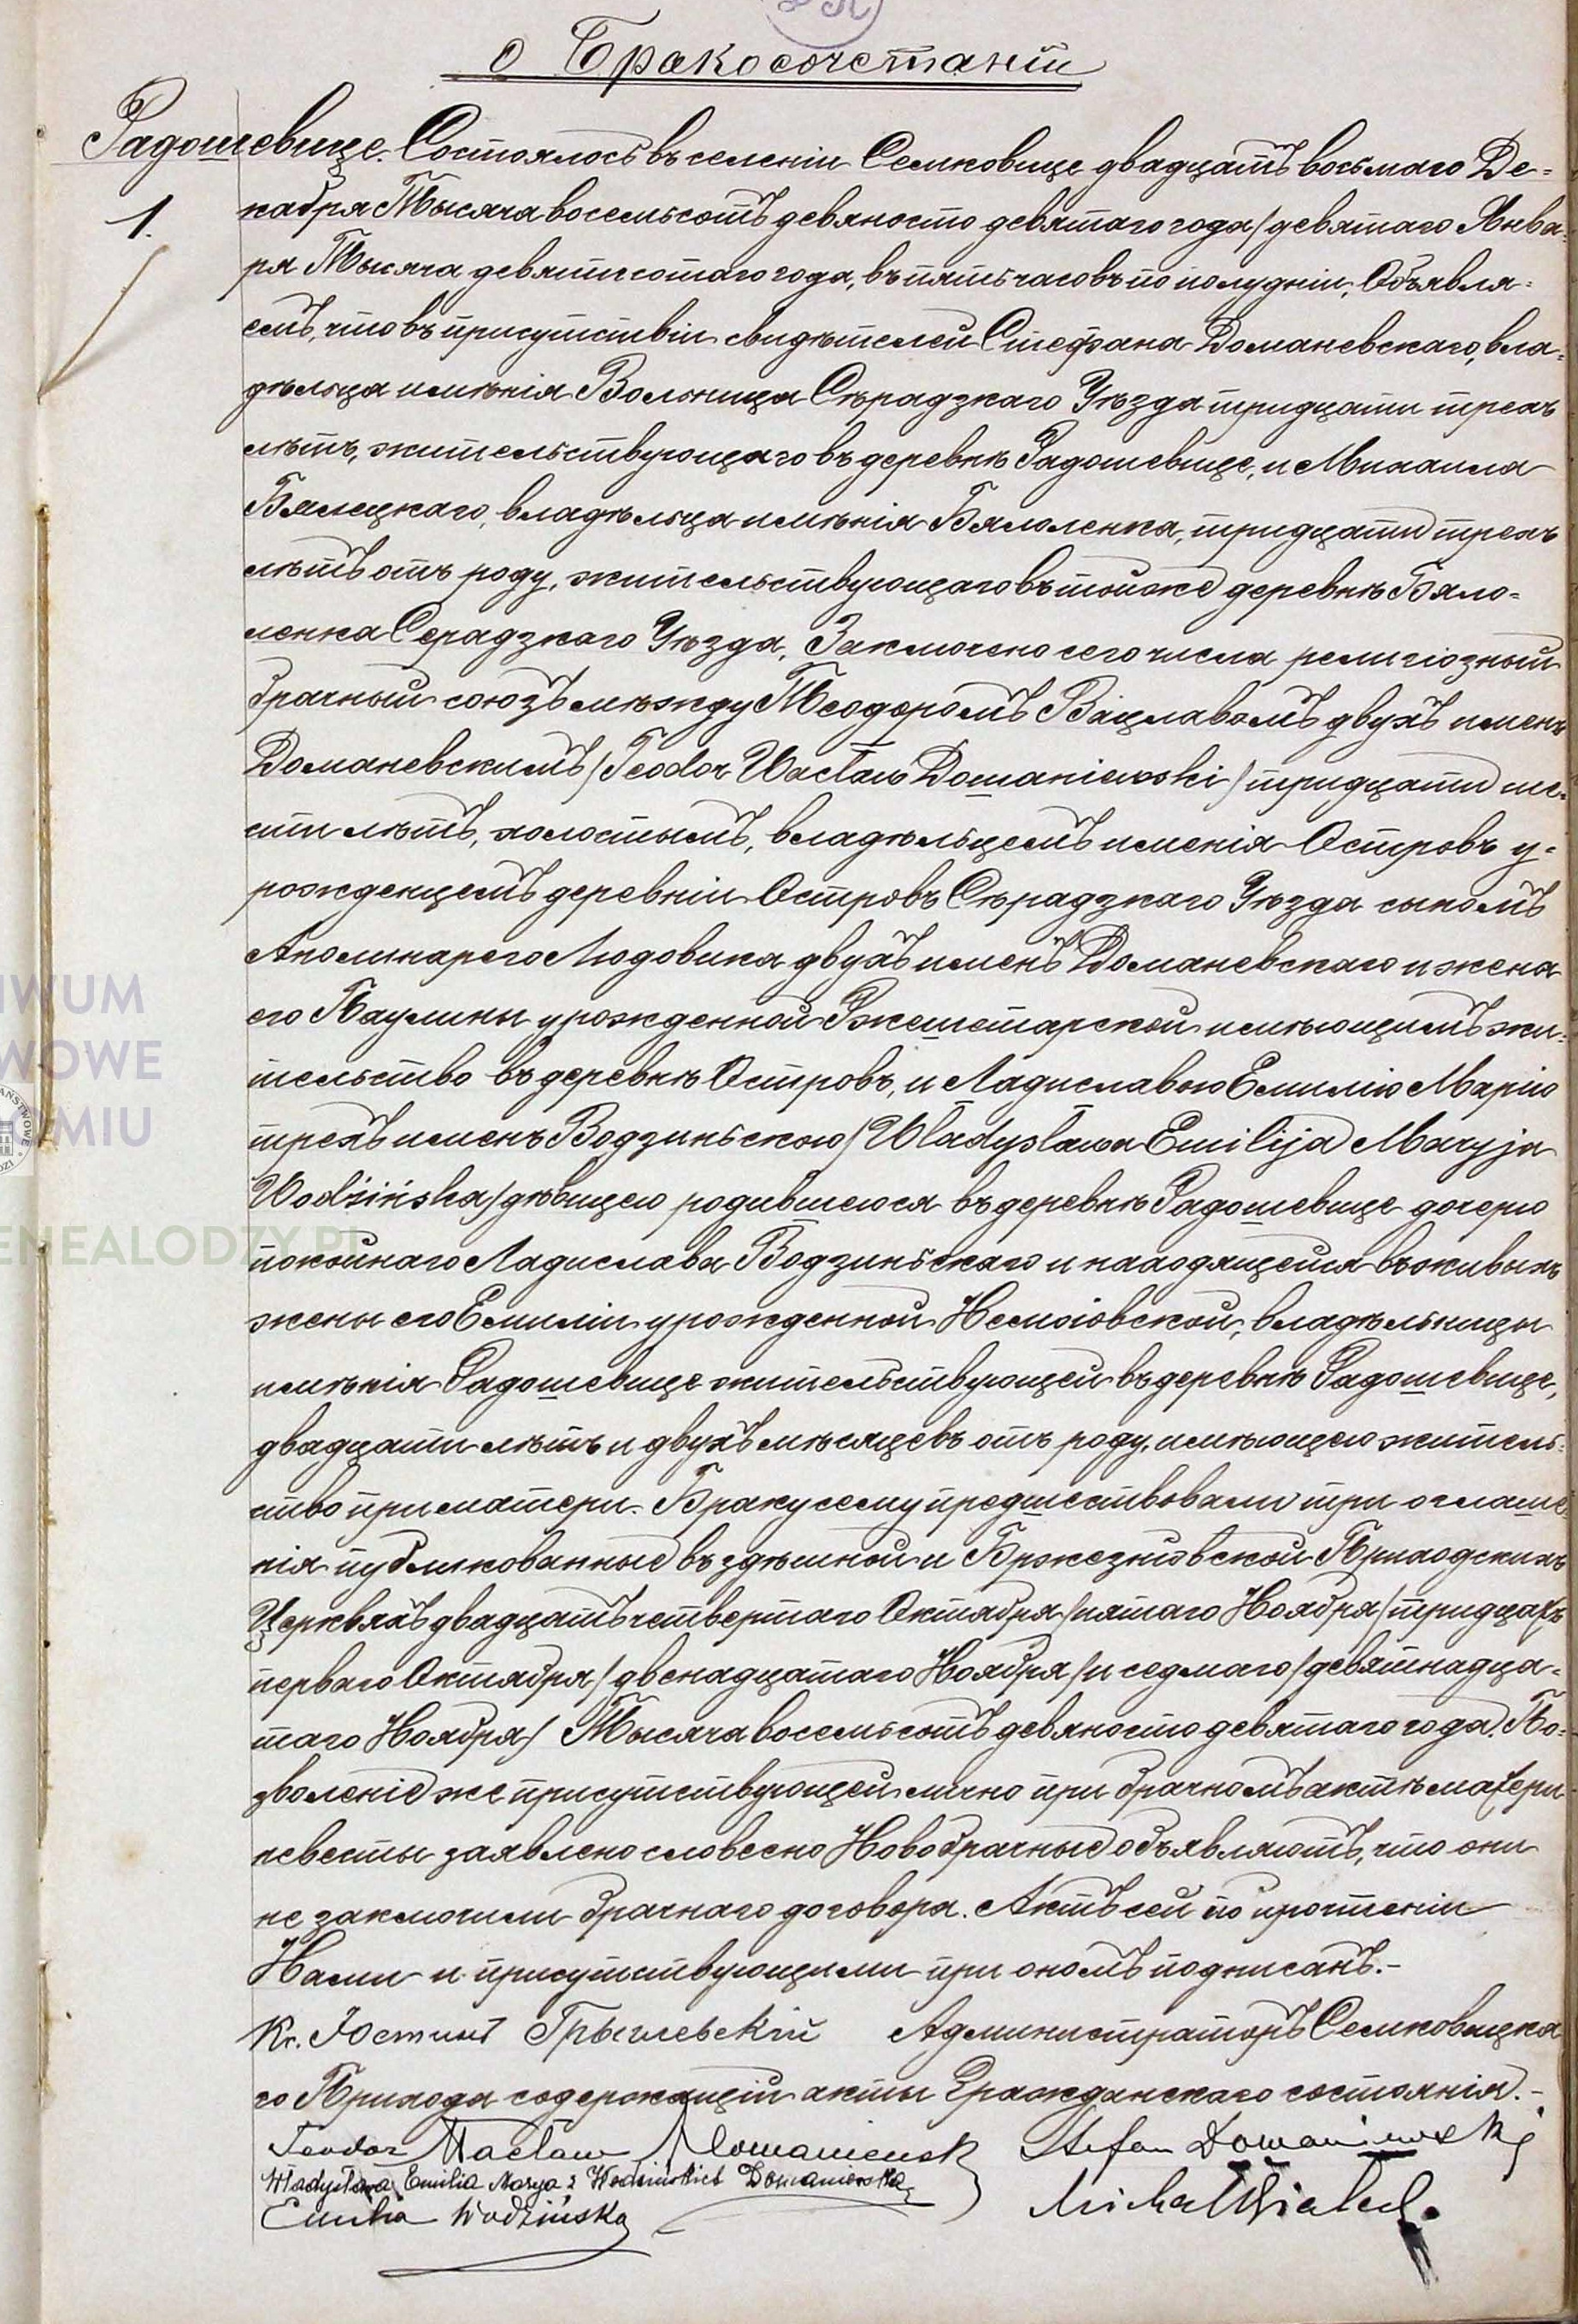 О Бракосочетанiи
Радошевице. Состоялось въ селенiи Семковице двадцать восьмаго Де=
1. кабря Тысяча восемьсотъ девяносто девятаго года / девятаго Янва=
ря Тысяча девятисотаго года, въ пять часовъ по полуднiи. Объявля=
емъ, что въ присутствiи свидѣтелей Стефана Доманевскаго, вла=
дѣльца имѣнiя Вольница Сѣрадзкаго Уѣзда тридцати трехъ
лѣтъ, жительствующаго въ деревнѣ Радошевице, и Михаила
Бялецкаго, владѣльца имѣнiя Бялоленка, тридцати трехъ
лѣтъ отъ роду, жительствующаго въ тойже деревнѣ Бяло=
ленка Серадзкаго Уѣзда, Заключено сего числа религiозный
брачный союзъ мѣжду Теодоромъ Вацлавомъ двухъ именъ
Доманевскимъ / Teodor Wacław Domaniewski / тридцати ше=
сти лѣтъ, холостымъ, владѣльцемъ именiя Островъ у=
рожденцемъ деревнiи Островъ Сѣрадзкаго Уѣзда сыномъ
Аполинарего Людовика двухъ именъ Доманевскаго и жена
его Паулины урожденной Ржешотарской имѣющимъ жи=
тельство въ деревнѣ Островъ, и Ладиславою Емилiю Марiю
трехъ именъ Водзиньскою / Władysława Emilija Maryja
Wodzińska / дѣвицею родившеюся въ деревнѣ Радошевице дочерю
покойнаго Ладислава Водзиньскаго и находящейся въ живыхъ
жены его Емилiи урожденной Немоiовской, владѣльницы
имѣнiя Радошевице жительствующей въ деревнѣ Радошевице,
двадцати лѣтъ и двухъ мѣсяцевъ отъ роду, имѣющею житель=
ство при матери. Браку сему предшествовали три оглаше
нiя публикованные въ здѣшной и Бржезнiовской Приходскихъ
Церквахъ двадцать четвертаго Октября / пятаго Ноября / тридцать
перваго Октября / двенадцатаго Ноября / и седмаго / девятнадца=
таго Ноября / Тысяча восемьсотъ девяносто девятаго года. По=
зволенiе же присутствующей лично при брачномъ актѣ матери
невесты заявлено словесно Новобрачные объявляютъ, что они
не заключили брачнаго договора. Актъ сей по прочтенiи
Нами и присутствующими при ономъ подписанъ.-
Кс. Юстинъ Администраторъ Семковицка
го Прихода содержащiй акты Гражданскаго состоянiя.-
Teodor Wacław Domaniewski Stefan Domaniewski
Władysława Emilia Marya z Wodzińskich Domaniewska
Emilia Wodzińska Michał Białecki